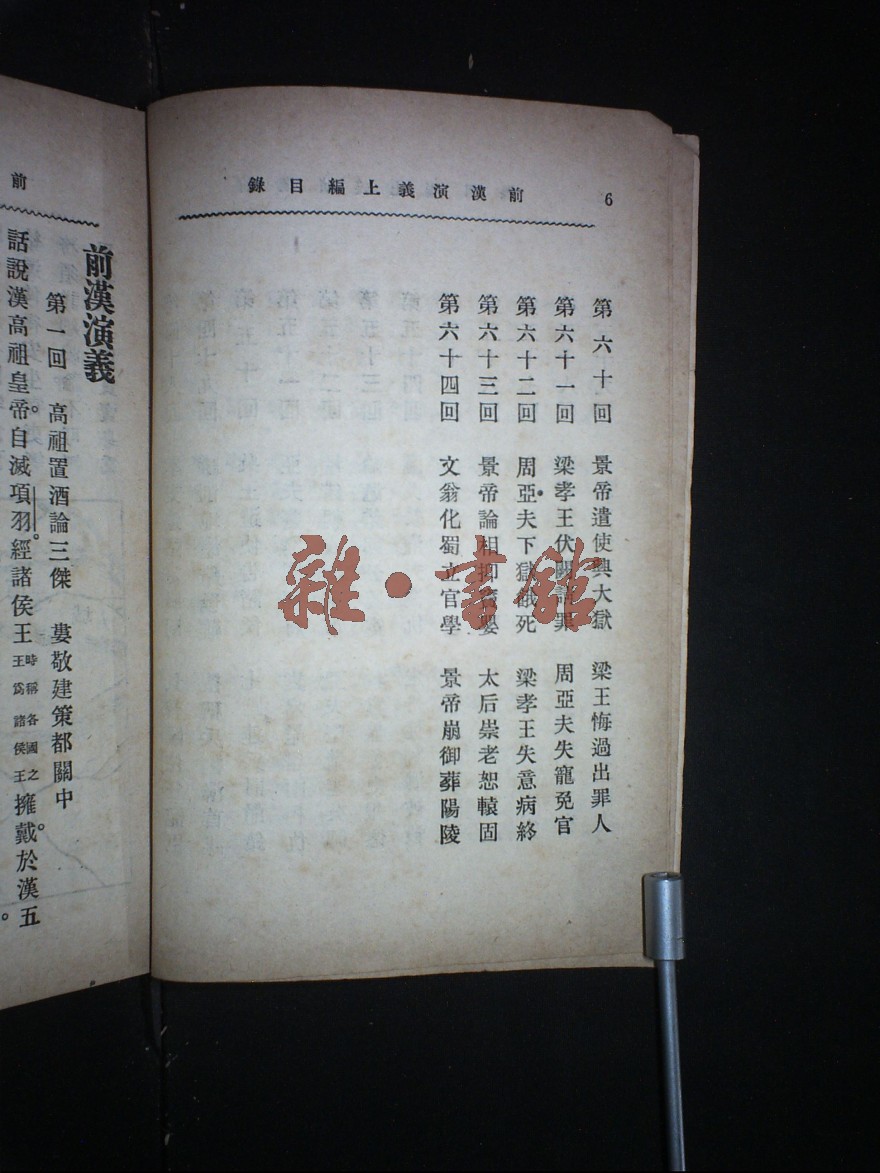 前漢演義上編目錄
6
第六十回 景帝遣使興大獄 梁王悔過出罪人
第六十一回 梁孝王伏闕請罪 周亞夫失寵免官
第六十二回 周亞夫下獄餓死 梁孝王失意病終
第六十三回 景帝論相抑竇嬰 太后崇老恕轅固
第六十四回 文翁化蜀立官學 景帝崩御葬陽陵
前
前漢演義
第一回 高祖置酒論三傑 婁敬建策都關中
話說漢高祖皇帝。自滅項羽。經諸侯王時稱各國之王爲諸侯王擁戴。於漢五
雜·書館